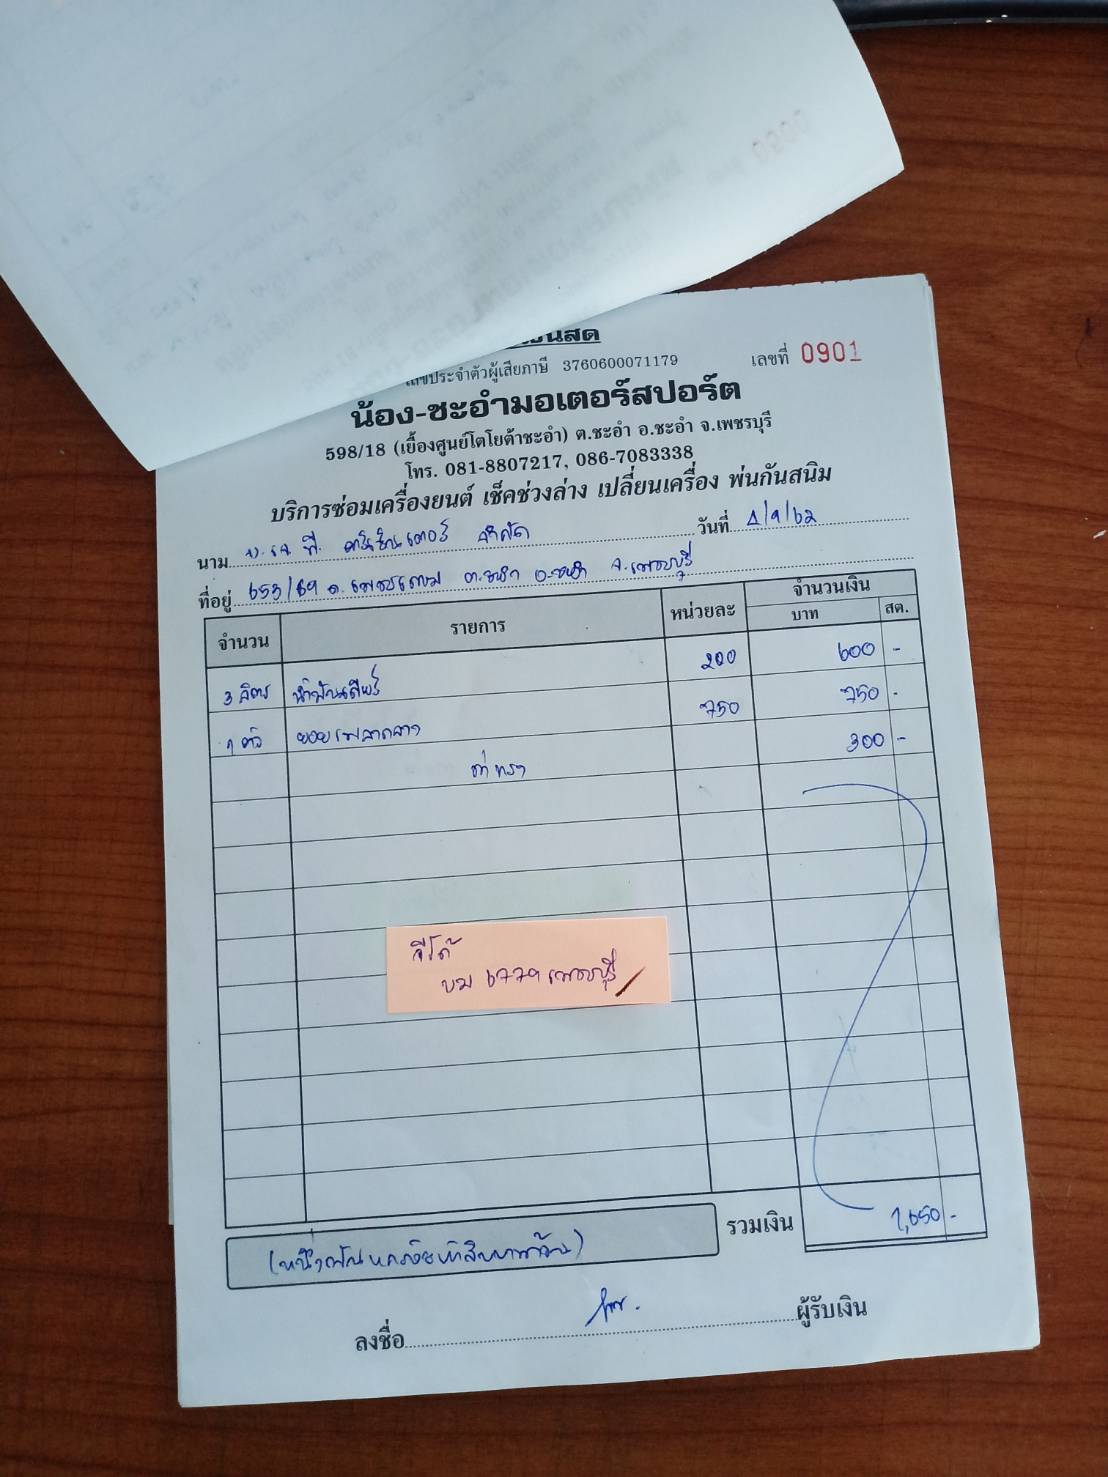 เลขประจำตัวผู้เสียภาษี 3760600071179 เลขที่ 0901
น้อง-ชะอำมอเตอร์สปอร์ต
598/18 (เยื้องศูนย์โตโยต้าชะอำ) ต.ชะอำ อ.ชะอำ จ.เพชรบุรี
โทร. 081-8807217, 086-7083338
บริการซ่อมเครื่องยนต์ เช็คช่วงล่าง เปลี่ยนเครื่อง พ่นกันสนิม
นาม จำกัด วันที่ 2/9/62
ที่อยู่ 653/69 ถ.เพชรเกษม ต.ชะอำ อ.ชะอำ จ.เพชรบุรี
จำนวน รายการ หน่วยละ จำนวนเงิน
บาท สต.
3 ลิตร น้ำมันเกียร์ 200 600 -
1 ตัว ยอยเพลากลาง 750 750 -
ค่าแรง 300 -
จีโต้
บม 6779 เพชรบุรี
รวมเงิน 1,650 -
(หนึ่งพันหกร้อยห้าสิบบาทถ้วน)
ลงชื่อ ผู้รับเงิน